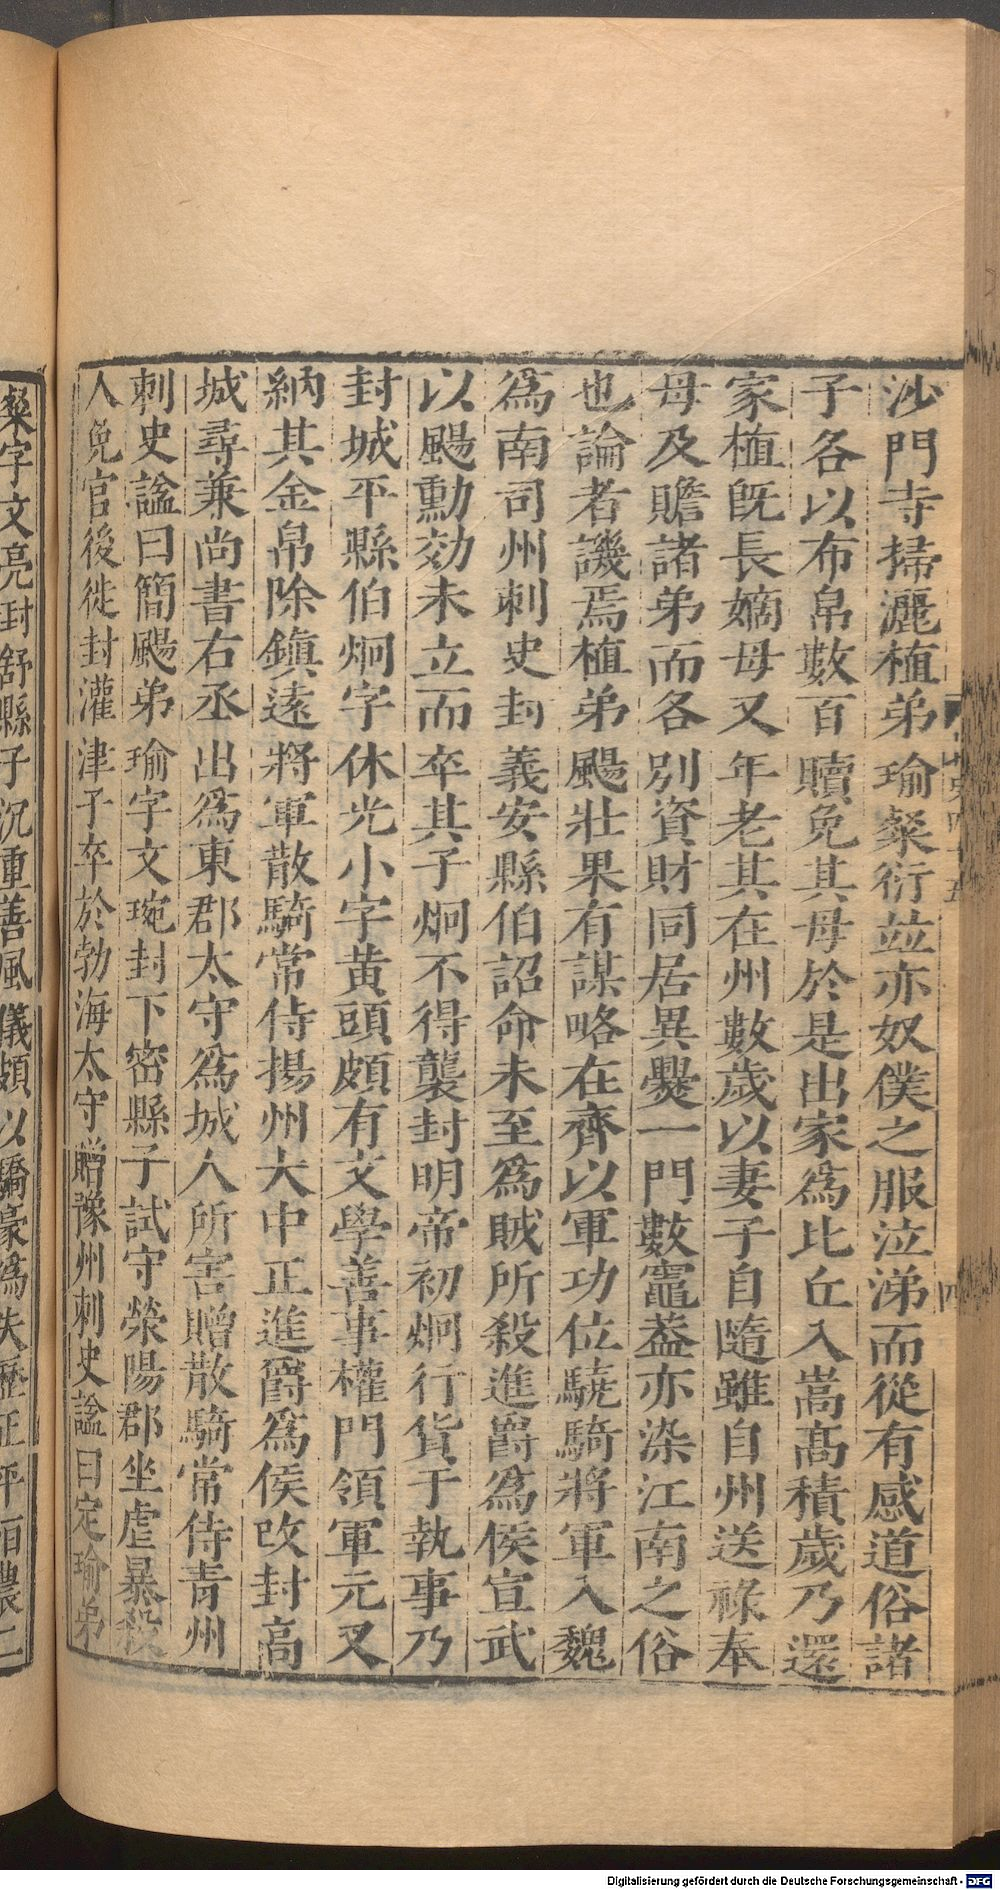 沙門寺掃灑植弟瑜粲衍竝亦奴僕之服泣涕而從有感道俗諸
子各以布帛數百贖免其母於是出家爲比丘入嵩高積歲乃還
家植旣長嫡母又年老其在州數歲以妻子自隨雖自州送祿奉
母及贍諸弟而各別資財同居異爨一門數竈葢亦染江南之俗
也論者譏焉植弟颺壯果有謀略在齊以軍功位驍騎將軍入魏
爲南司州刺史封義安縣伯詔命未至爲賊所殺進爵爲侯宣武
以颺勳効未立而卒其子炯不得襲封明帝初炯行貨于執事乃
封城平縣伯炯字休光小字黄頭頗有文學善事權門領軍元叉
納其金帛除鎭遠將軍散騎常侍揚州大中正進爵爲侯改封高
城尋兼尚書右丞出爲東郡太守爲城人所害贈散騎常侍青州
刺史諡曰簡颺弟瑜字文琬封下密縣子試守滎陽郡坐虐暴殺
人免官後徙封灌津子卒於勃海太守贈豫州刺史諡曰定瑜弟
粲字文亮封舒縣子沉重善風儀頗以驕豪爲失歷正平恒農二
四
Digitalisierung gefördert durch die Deutsche Forschungsgemeinschaft - DFG